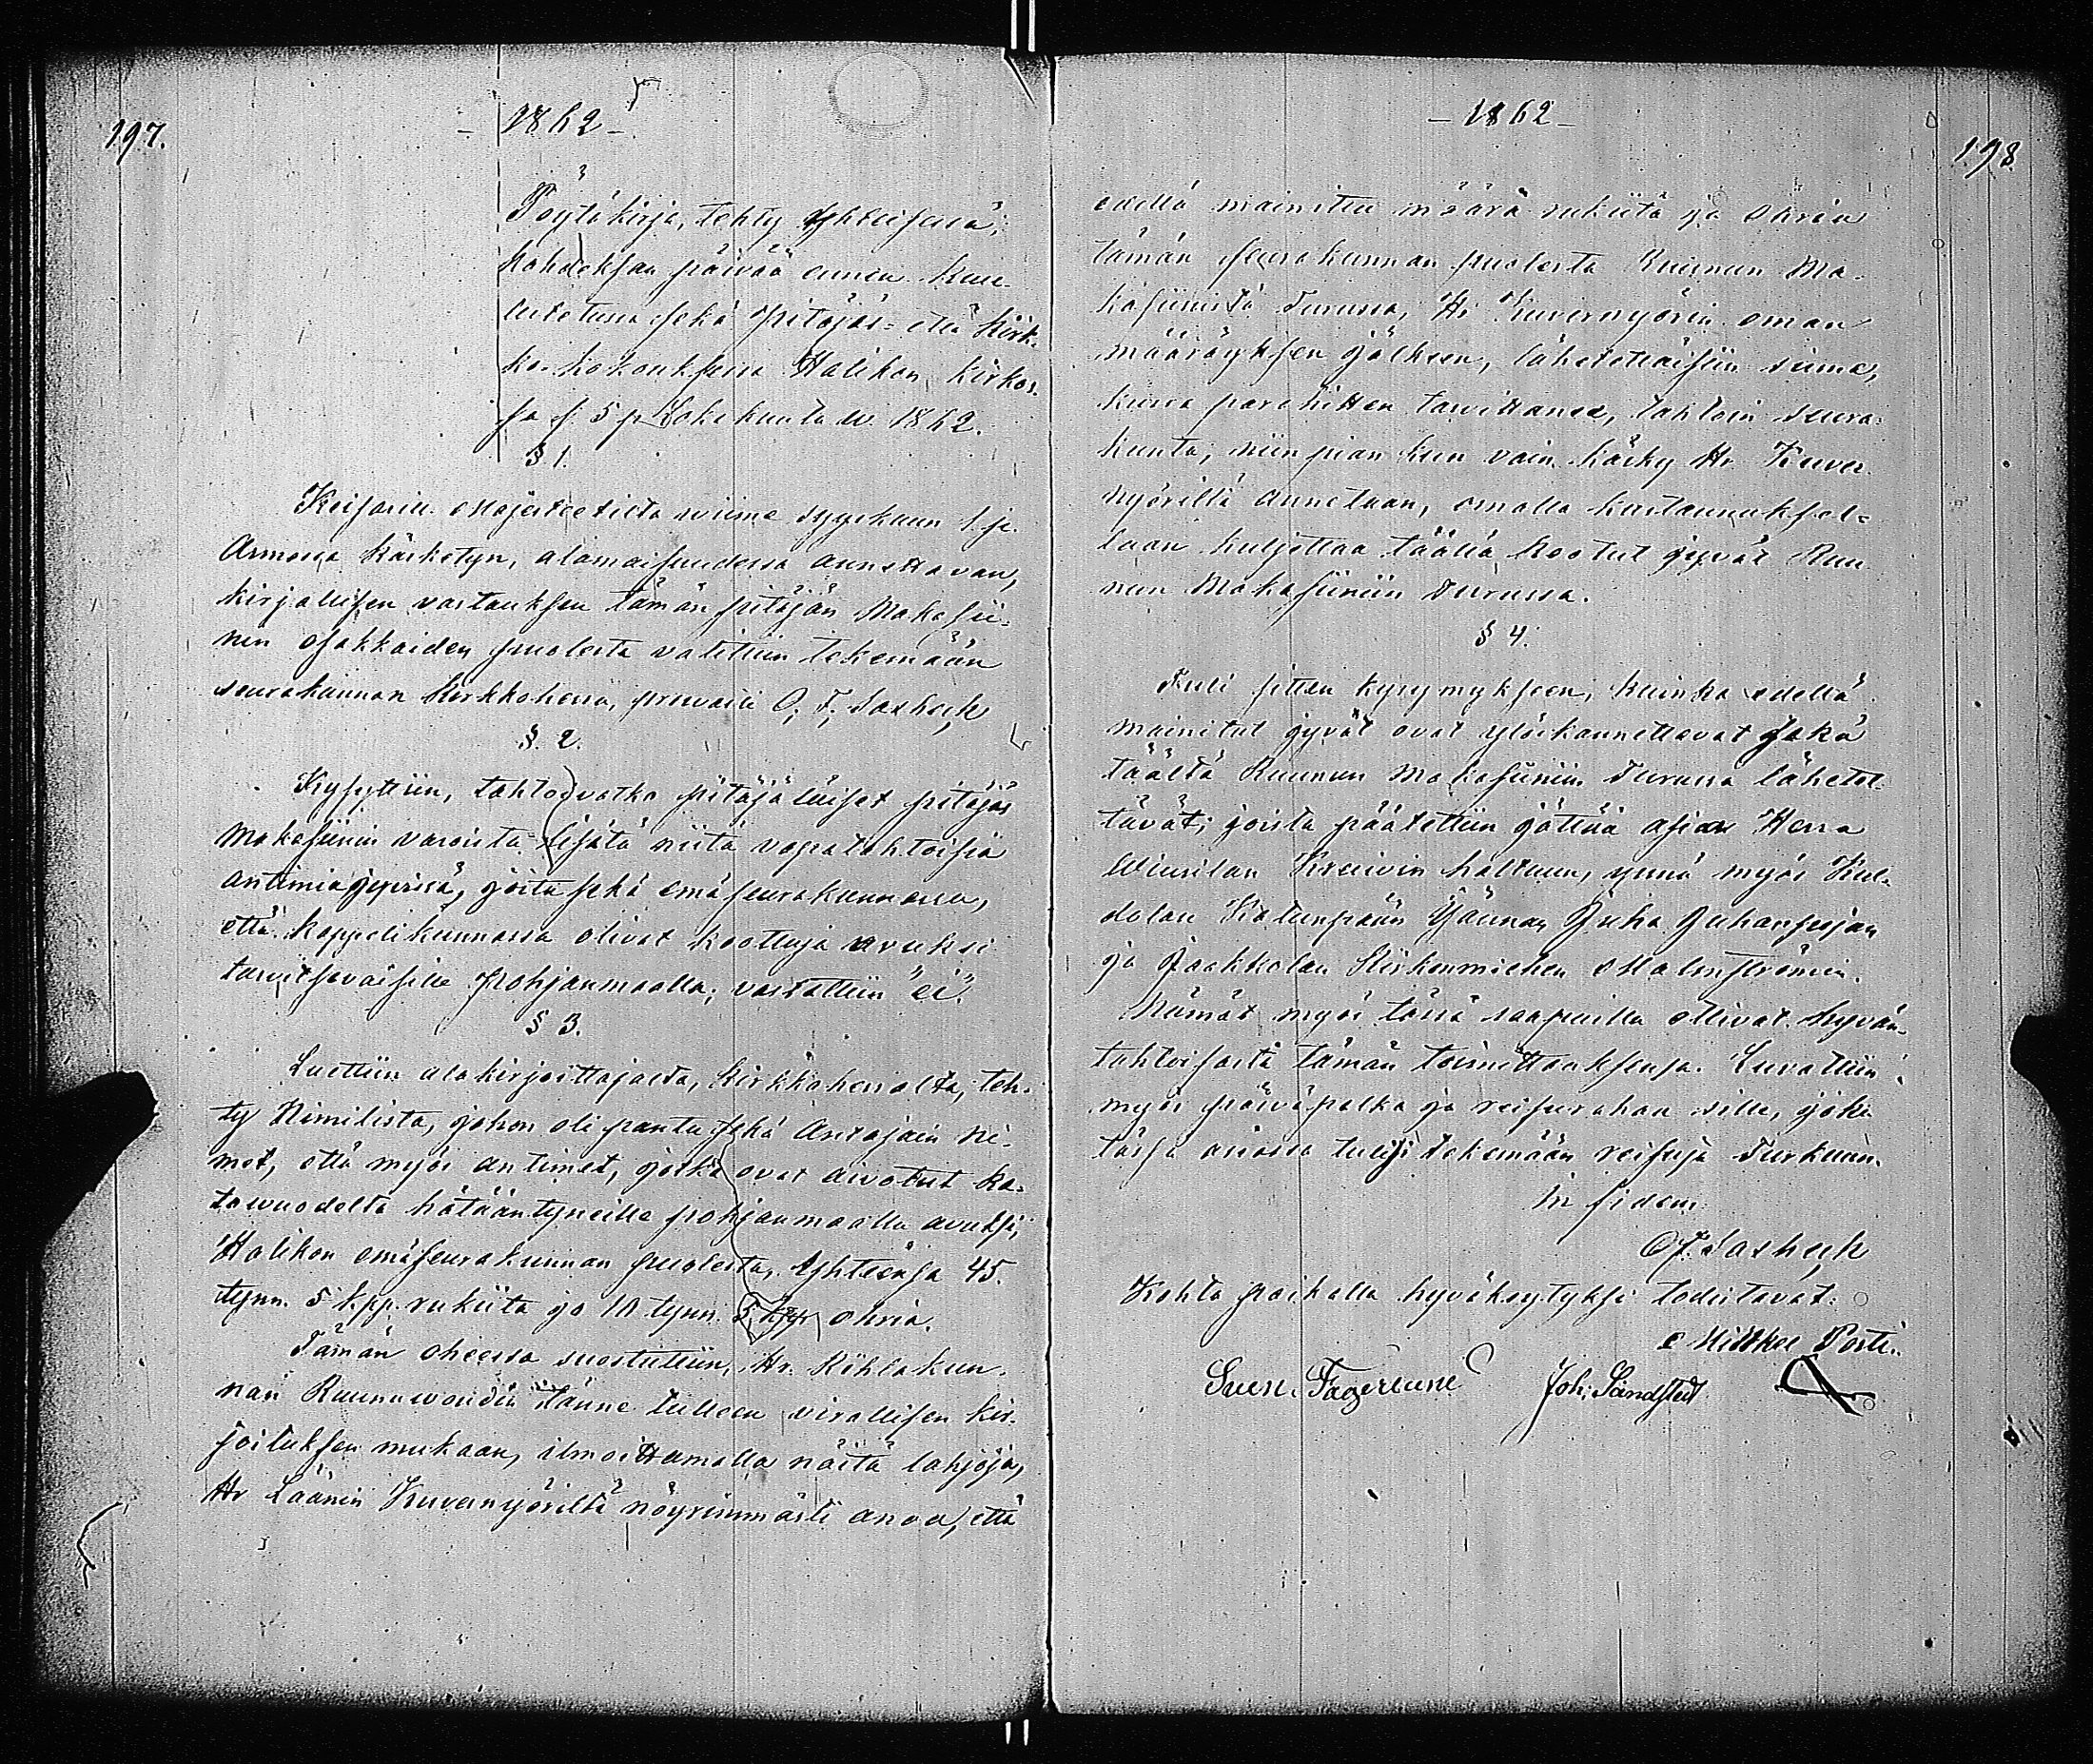 197.
- 1862 -
Pöytäkirja, tehty yhteisessä,
kahdeksan päivää ennen kuu-
lutetussa sekä pitäjäs- että Kirk-
ko-kokouksessa Halikon kirkos-
sa s. 5 p. Lokakuuta w. 1862.
§ 1.
Keisarill. Majesteetilta wiime Syyskuun 1 p.
Armossa käsketyn, alamaisuudessa annettavan,
kirjallisen vastauksen tämän pitäjän Makasii-
nin osakkaiden puolesta valittiin tekemään
seurakunnan Kirkkoherra, prowasti O. F. Saxbeck
§. 2.
Kysyttiin, tahtoovatko pitäjäläiset pitäjäs
Makasiinin varoista lisätä niitä vapatahtoisia
antimia jyvissä, joita sekä emäseurakunnassa,
että kappelikunnassa olivat koottuja avuksi
tarvitsevaisille Pohjanmaalla; vastattiin "ei".
§ 3.
Luettiin alakirjoittajalta, Kirkkoherralta, teh-
ty Nimilista, johon oli pantu sekä Antajain ni-
met, että myös antimet, jotka ovat aivotut ka-
towuodelta hätääntyneille pohjanmaalla avuksi,
Halikon emäseurakunnan puolesta, Yhteensä 45.
tynn. 5 kpp. rukiita ja 10 tynn. 5 kpp ohria.
Tämän oheessa suostuttiin, Hr. Kihlakun-
nan Ruunuwoudin tänne tulleen virallisen kir-
joituksen mukaan, ilmoittamalla näitä lahjoja,
Hr Läänin Kuvernyöriltä nöyrimmästi anoa, että
- 1862 -
198
edellä mainittu määrä rukiita ja ohria
tämän seurakunnan puolesta Ruunun Ma-
kasiinista Turussa, Hr Kuvernyörin oman
määräyksen jälkeen, lähetettäisiin sinne,
kussa parahitten tarvittanee, tahtoin seura-
kunta, niin pian kun vain käsky Hr. Kuver-
nyöriltä annetaan, omalla kustannuksel-
laan kuljettaa täältä kootut jyvät Ruu-
nun Makasiiniin Turussa.
§ 4.
Tuli sitten kysymykseen, kuinka edellä
mainitut jyvät ovat ylöskannettavat sekä
täältä Ruunun Makasiiniin Turussa lähetet-
tävät; josta päätettiin jättää asian Herra
Wiurilan Kreivin haltuun, ynnä myös
Katunpään Juha Juhanpojan
ja Jaakkolan Malmströmin.
Nämät myös tässä saapuilla ollivat hyvän-
tahtoisesti tämän toimittaaksensa. Luvattiin
myös päiväpalka ja reisurahaa sille, joka
tässä asiassa tulisi tekemään reisuja Turkuun.
In fidem
O F. Saxbeck
Kohta paikalla hyväksytyksi todistavat:
Mikkel Posti.
Sven. Fagerlund Joh: Sandstedt